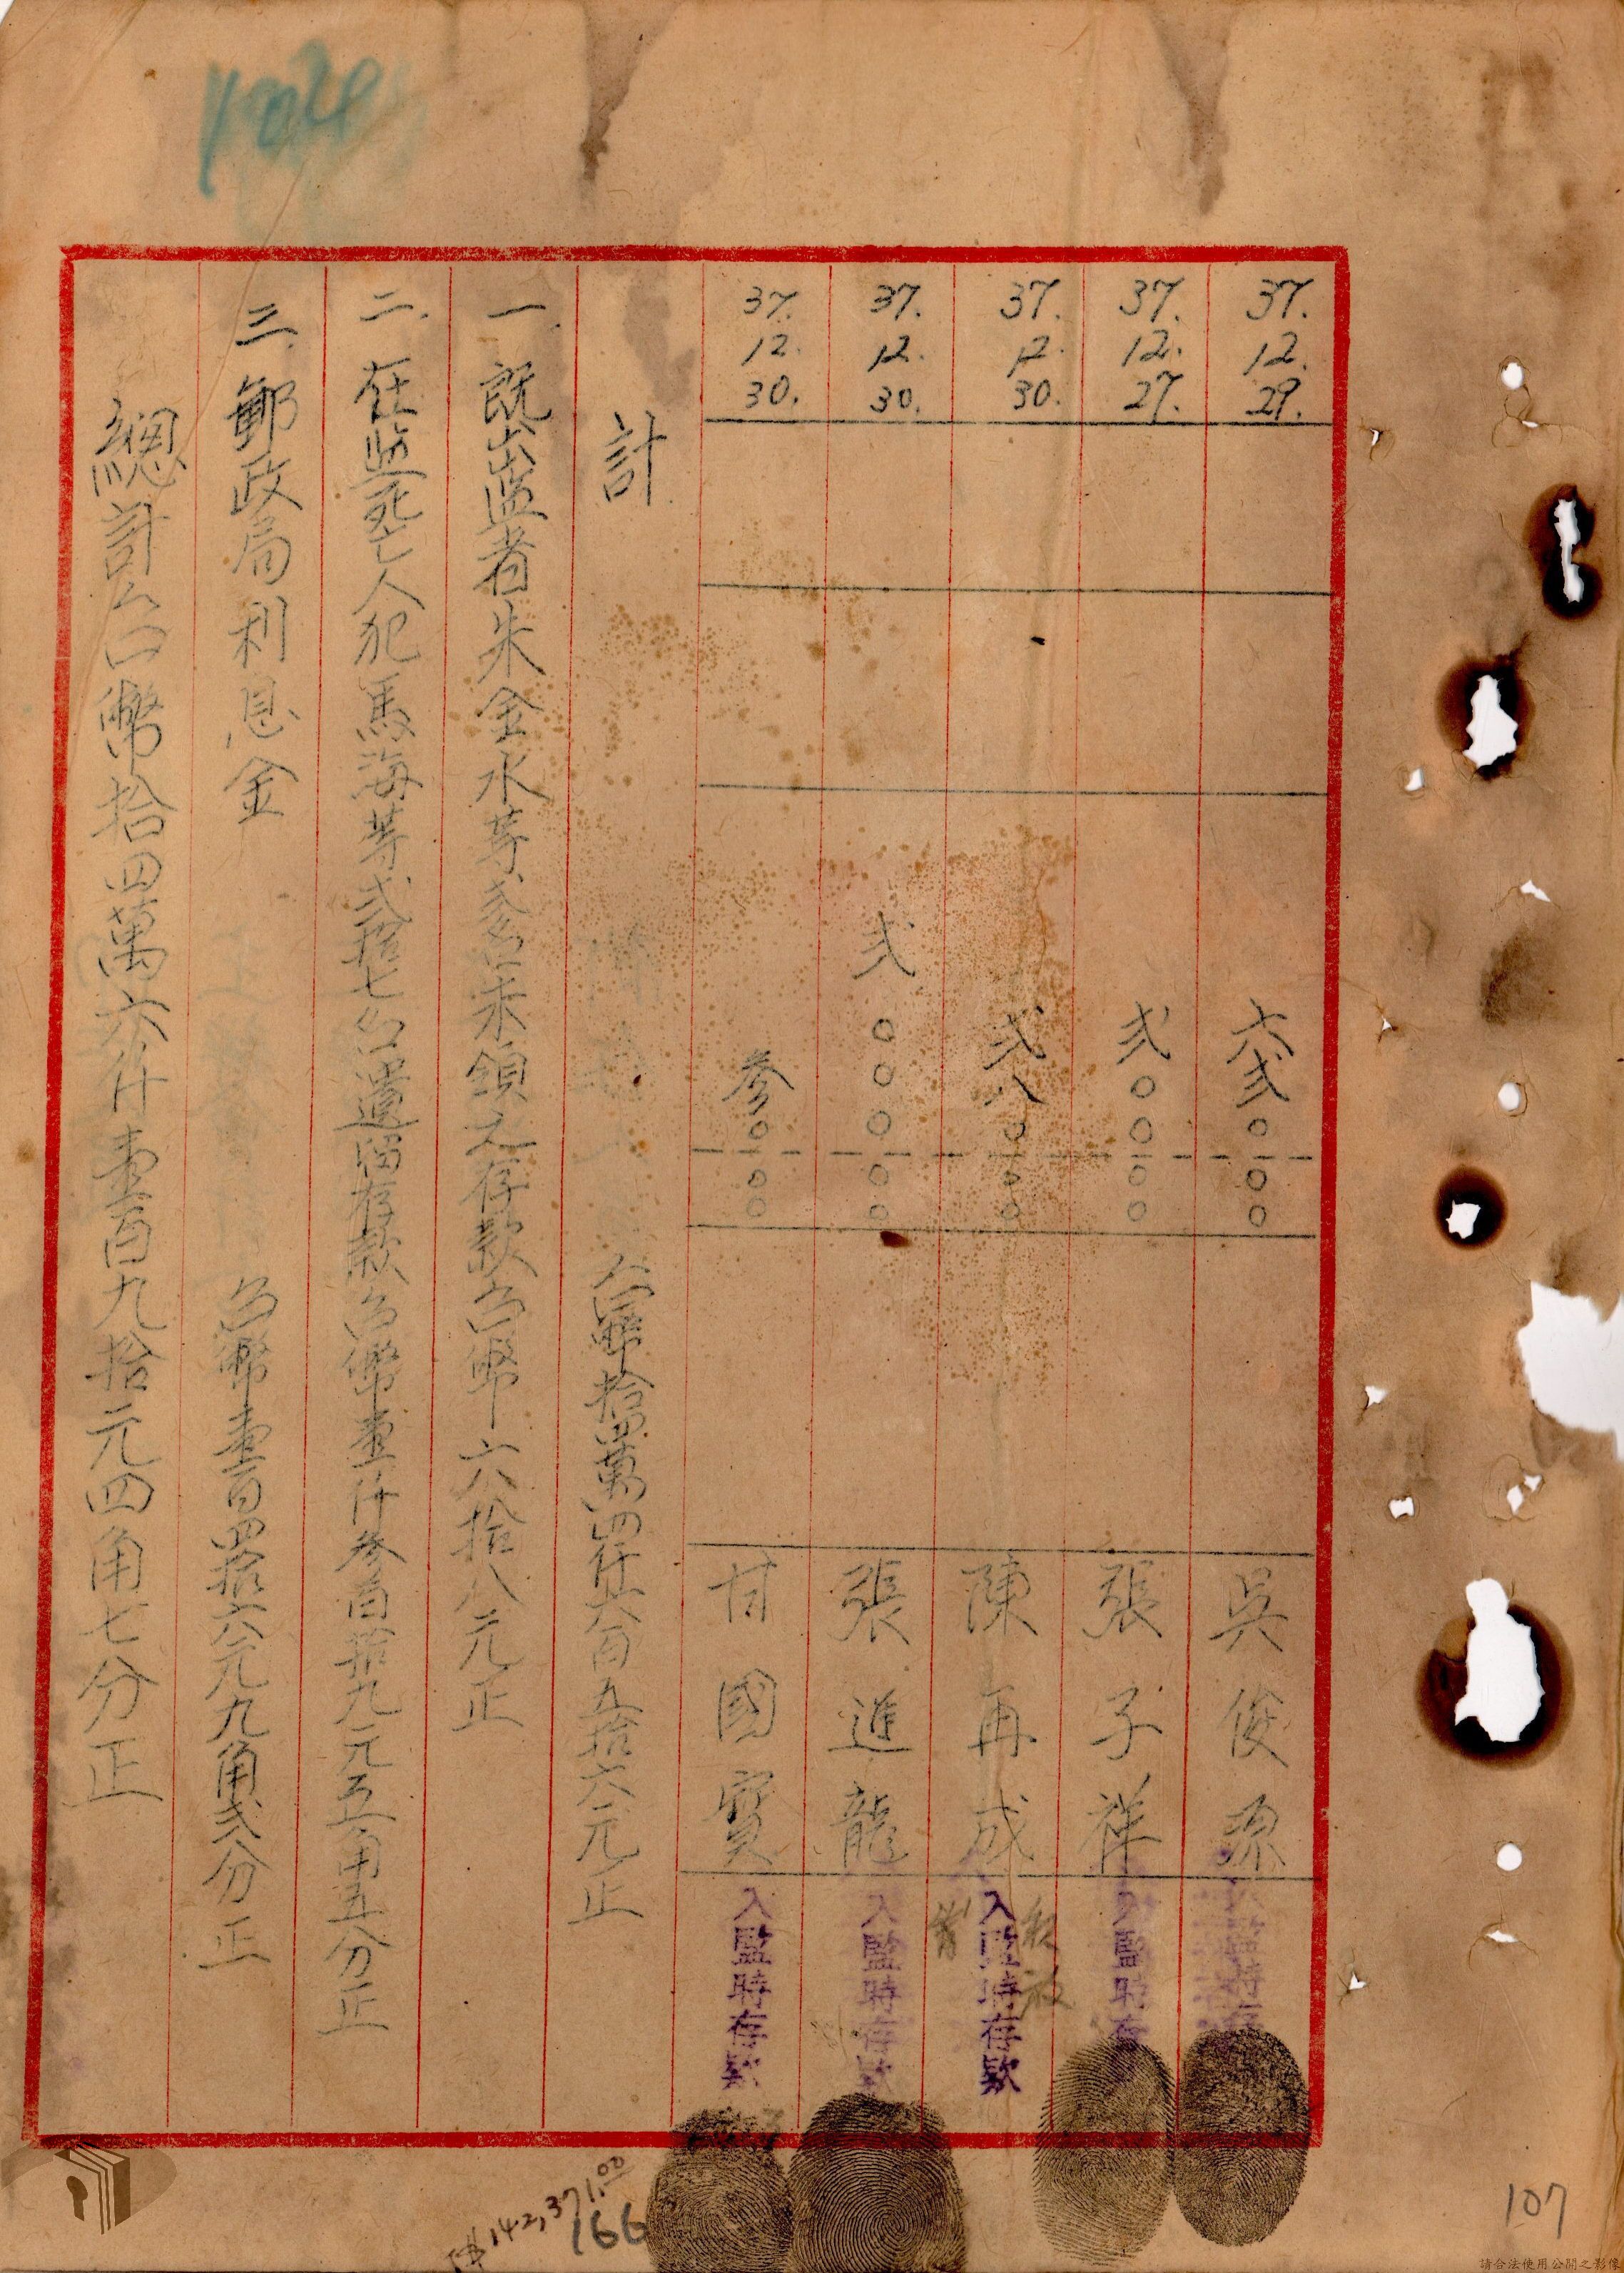 37.12.29. 六弍〇〇〇 吳俊源 入監時存款
37.12.27. 弍〇〇〇〇 張子祥 入監時存款
37.12.30. 弍八〇〇〇 陳再成 入監時存款
37.12.30. 弍〇〇〇〇〇 張進龍 入監時存款
37.12.30. 参〇〇〇 甘國寶 入監時存款
計 台幣拾四萬四仟六百五拾六元正
一.既出監者朱金水等参名未領之存款台幣六拾八元正
二.在監死亡人犯馬海等弍拾七名遺留存款台幣壹仟参百拾九元五角五分正
三.郵政局利息金 台幣壹百四拾六元九角弍分正
總計台幣拾四萬六仟壹百九拾元四角七分正
142,371.00
166
107
請合法使用公開之影像